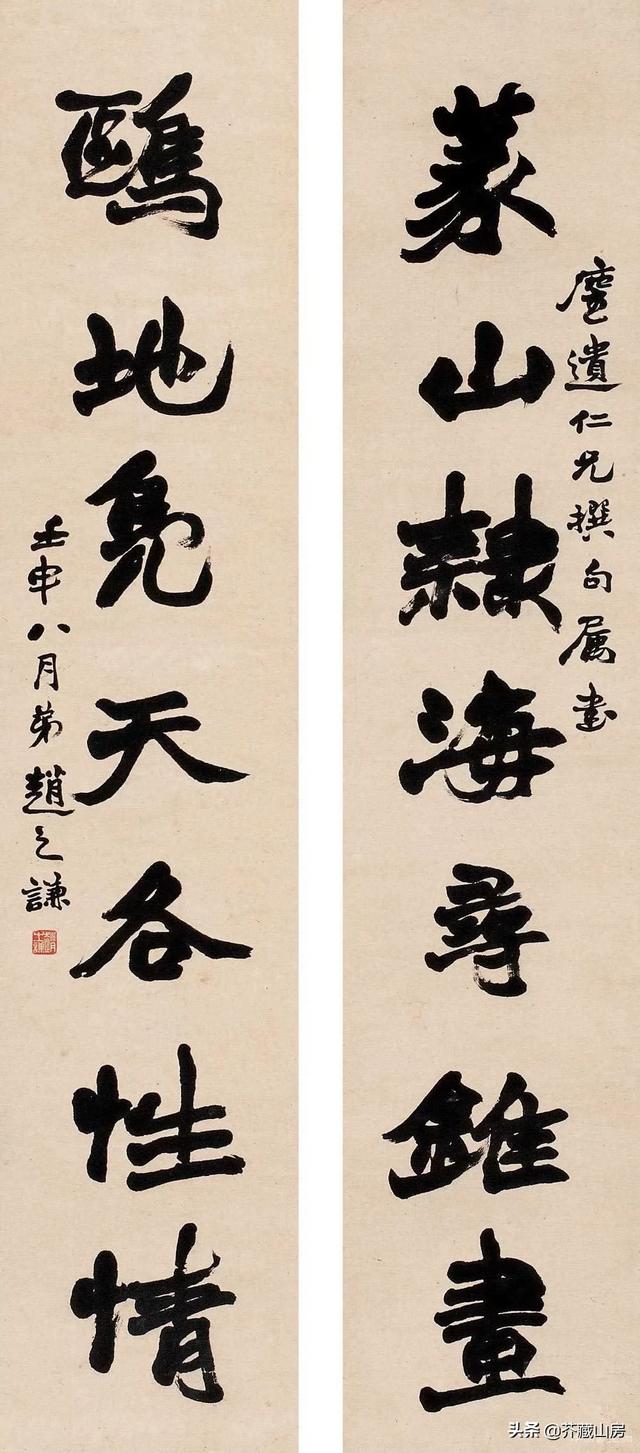 遺仁兄撰句属書
篆山隸海尋錐畫
鷗地鳧天各性情
壬申八月弟趙之謙
头条 @芥藏山房